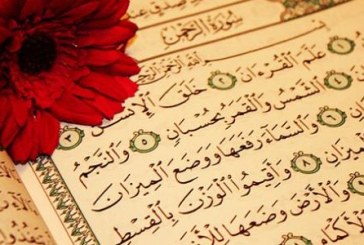 سُورَةُ الرَّحْمَٰن
عَلَّمَ الْقُرْءَانَ ٢ خَلَقَ الْإِنسَٰنَ
الشَّمْسُ وَالْقَمَرُ بِحُسْبَانٍ ٥ وَالنَّجْمُ
٦ وَالسَّمَآءَ رَفَعَهَا وَوَضَعَ الْمِيزَانَ
٨ وَأَقِيمُوا الْوَزْنَ بِالْقِسْطِ
وَالْأَرْضَ وَضَعَهَا